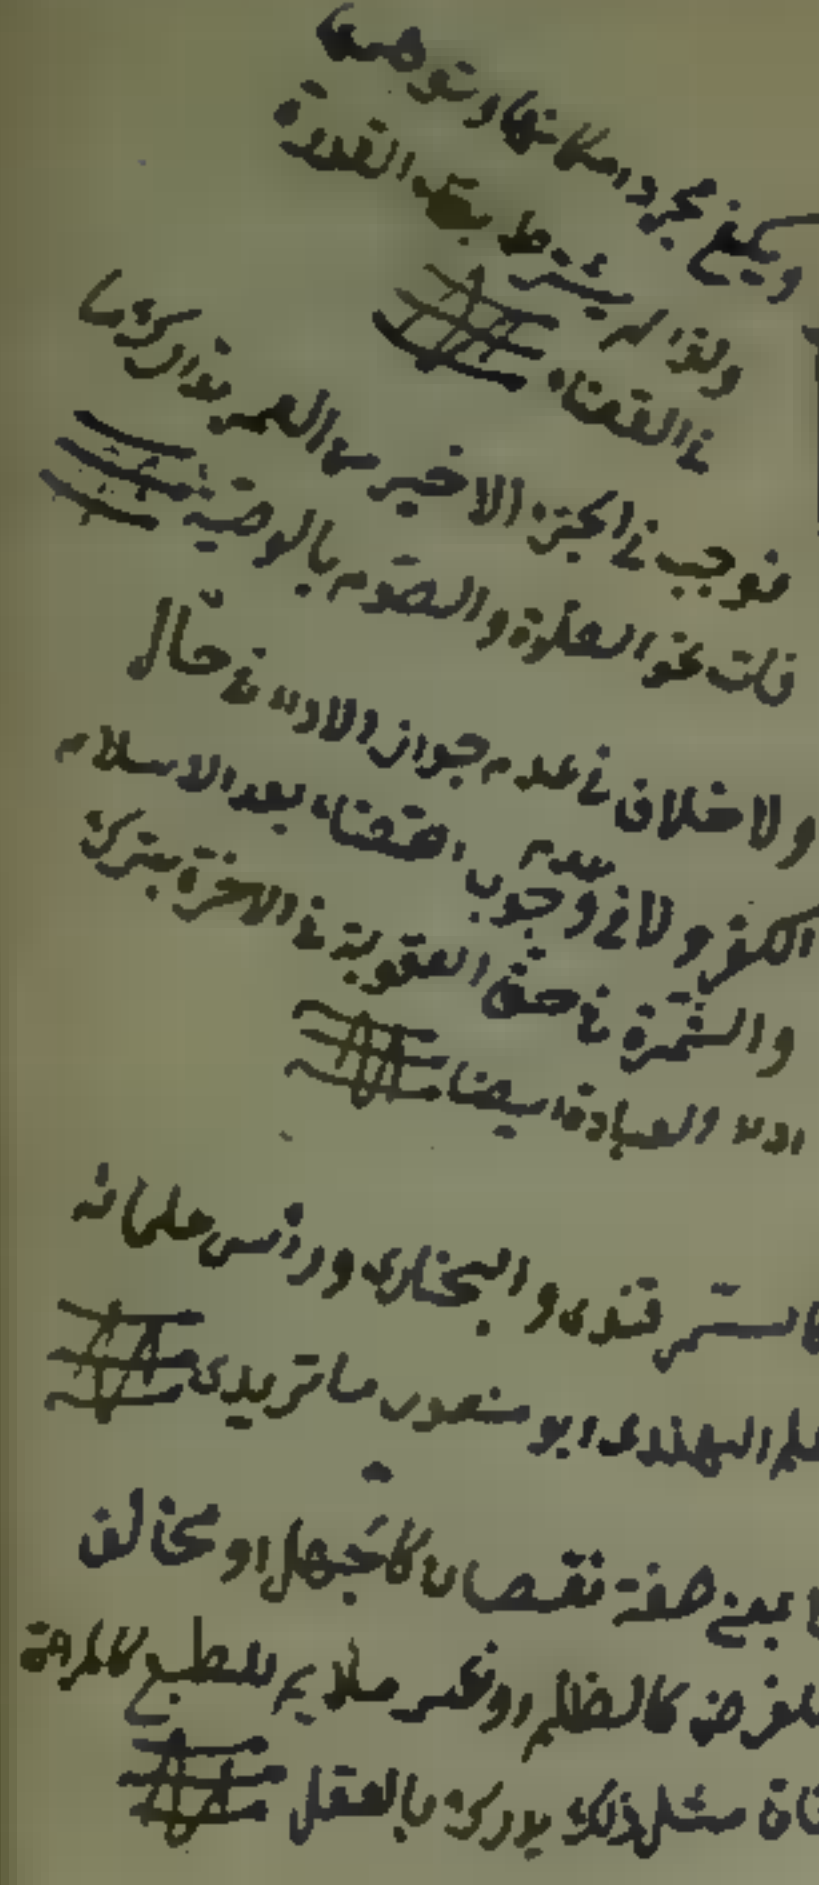 ويكفي مجرد امكانها وتوهمها
ولهذا لم يشترط بقاء القدرة
في القضاء
فوجب في الجزء الاخير من العمر تدارك ما
فات نحو الصلوة والصوم بالوصية
ولا خلاف في عدم جواز الاداء في حال
الكفر ولا في عدم وجوب القضاء بعد الاسلام
والثمرة في حق العقوبة في الاخرة بترك
اداء العبادة ايضا
كالسمرقندى والبخارى ورائس علمائه
علم الهندى ابو منصور ماتريدى
بمعنى صفة نقصان كالجهل او مخالف
للغرض كالظلم او غير ملايم للطبع كالمرا
مثل ذلك يدرك بالعقل